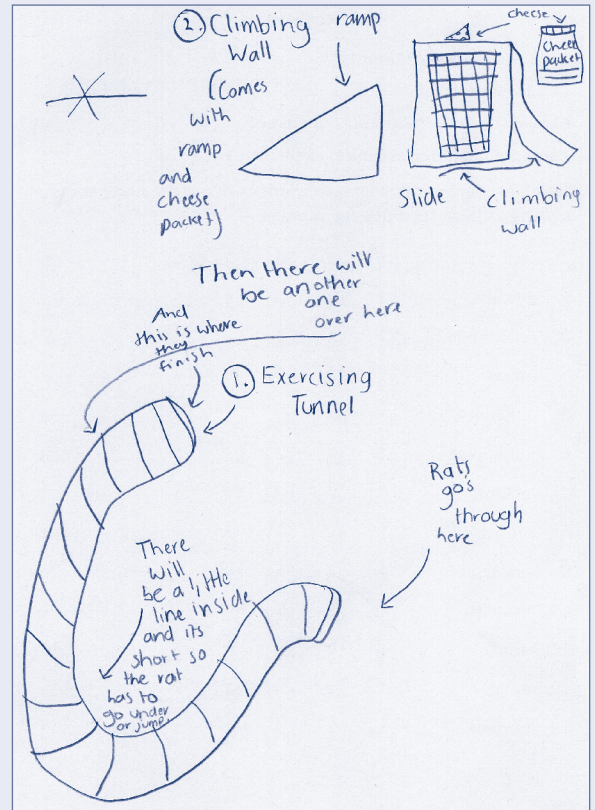 2. Climbing
Wall
(Comes
with
ramp
and
cheese
packet)
ramp
cheese
Cheese
packet
Slide
Climbing
wall
Then there will
be another
one
over here
And
this is where
they
finish
1. Exercising
Tunnel
Rats
go's
through
here
There
will
be a little
line inside
and its
short so
the rat
has to
go under
or jump.